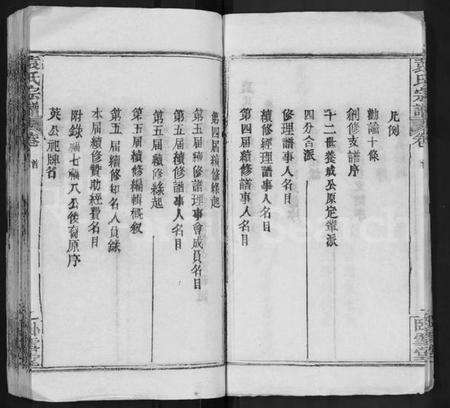 袁氏宗譜
卷首
凡例
勸諭十條
創修支譜序
十二世養成公原定輩派
四分合派
修理譜事人名目
續修經理譜事人名目
第四屆續修譜事人名目
臥雪堂
第四屆續修緣起
第五屆續修譜理事會成員名目
第五屆續修譜事人名目
第五屆續修緣起
第五屆續修編輯概叙
第五屆續修知名人員錄
本屆續修贊助經費名目
附錄福七福八公後裔原序
袁氏宗譜
卷首
臥雪堂